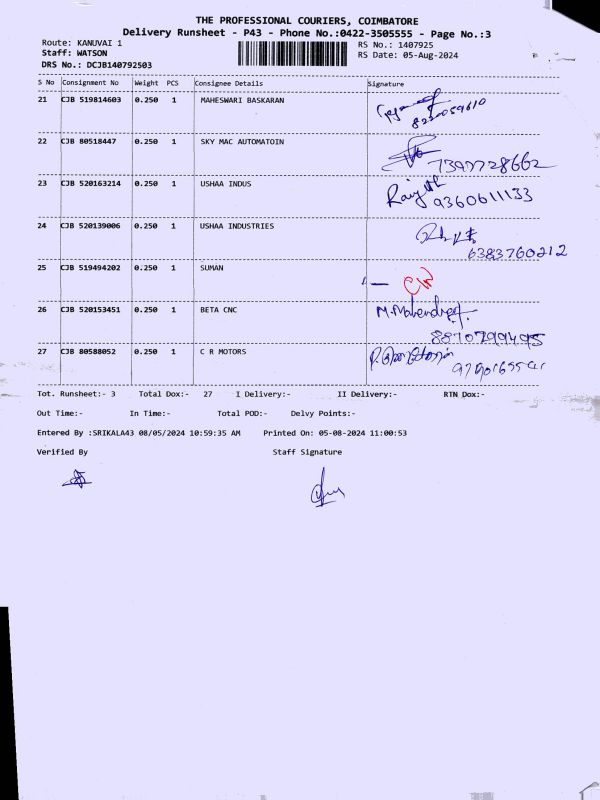 THE PROFESSIONAL COURIERS, COIMBATORE
Delivery Runsheet - P43 - Phone No.:0422-3505555 - Page No.:3
Route: KANUVAI 1
RS No.: 1407925
Staff: WATSON
RS Date: 05-Aug-2024
DRS No.: DCJB140792503
S No Consignment No Weight PCS Consignee Details Signature
21 CJB 519814603 0.250 1 MAHESWARI BASKARAN
22 CJB 80518447 0.250 1 SKY MAC AUTOMATOIN
7397728662
23 CJB 520163214 0.250 1 USHAA INDUS
9360611133
24 CJB 520139006 0.250 1 USHAA INDUSTRIES
6383760212
25 CJB 519494202 0.250 1 SUMAN
26 CJB 520153451 0.250 1 BETA CNC
8870799495
27 CJB 80588052 0.250 1 C R MOTORS
Tot. Runsheet:- 3 Total Dox:- 27 I Delivery:- II Delivery:- RTN Dox:-
Out Time:- In Time:- Total POD:- Delvy Points:-
Entered By :SRIKALA43 08/05/2024 10:59:35 AM Printed On: 05-08-2024 11:00:53
Verified By Staff Signature